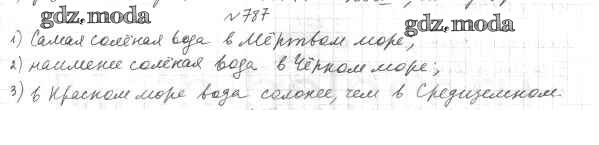 gdz.moda №787 gdz.moda
1) Самая солёная вода в Мёртвом море;
2) наименее солёная вода в Чёрном море;
3) в Красном море вода солонее, чем в Средиземном.